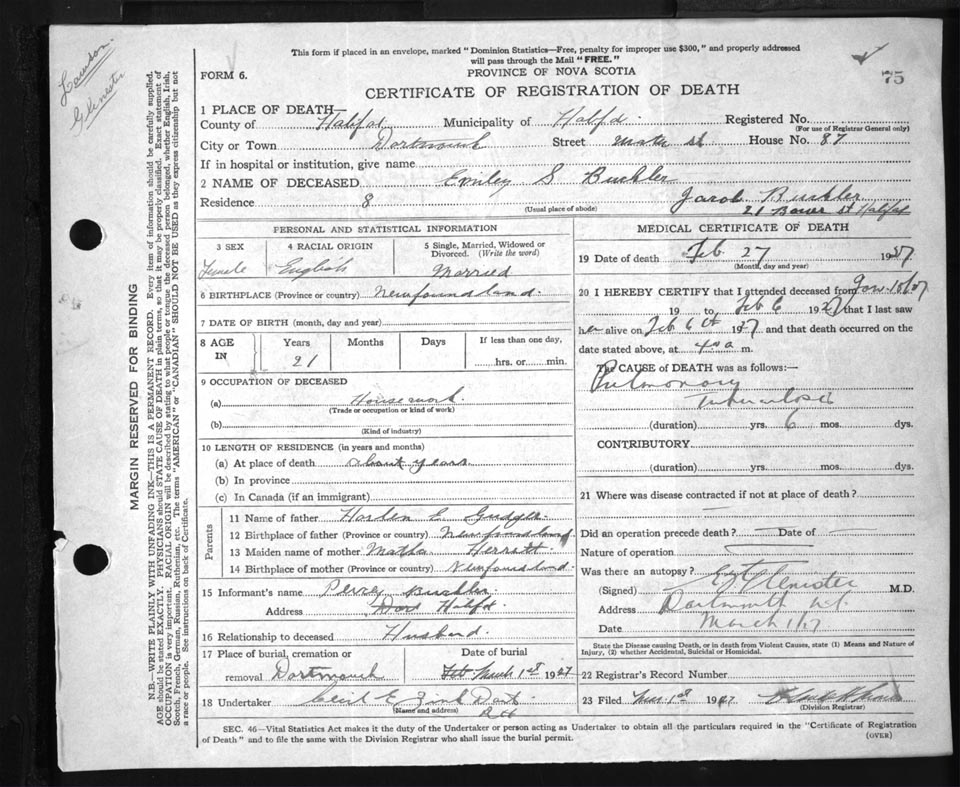 This form if placed in an envelope, marked "Dominion Statistics—Free, penalty for improper use $300," and properly addressed
will pass through the Mail "FREE."
75
FORM 6.
PROVINCE OF NOVA SCOTIA
CERTIFICATE OF REGISTRATION OF DEATH
1 PLACE OF DEATH—
County of Halifax Municipality of Halfd. Registered No.
(For use of Registrar General only)
City or Town Dartmouth Street House No. 87
If in hospital or institution, give name
2 NAME OF DECEASED Emiley S Buckler
Residence 8 Jacob Buckler
(Usual place of abode) 21 Bower St Halifax
PERSONAL AND STATISTICAL INFORMATION
3 SEX 4 RACIAL ORIGIN 5 Single, Married, Widowed or Divorced. (Write the word)
Female English Married
6 BIRTHPLACE (Province or country) Newfoundland.
7 DATE OF BIRTH (month, day and year)
8 AGE IN Years Months Days If less than one day,
21 hrs. or min.
9 OCCUPATION OF DECEASED
(a) Housework
(Trade or occupation or kind of work)
(b)
(Kind of industry)
10 LENGTH OF RESIDENCE (in years and months)
(a) At place of death about years
(b) In province
(c) In Canada (if an immigrant)
Parents
11 Name of father Harlen E.
12 Birthplace of father (Province or country) Newfoundland
13 Maiden name of mother Matha
14 Birthplace of mother (Province or country) Newfoundland.
15 Informant's name Percy Buckler
Address Dart Halfd.
16 Relationship to deceased Husband.
17 Place of burial, cremation or removal Dartmouth Date of burial Feb March 1st 1927
18 Undertaker Cecil E Zink Dart
(Name and address)
MEDICAL CERTIFICATE OF DEATH
19 Date of death Feb 27 1927
(Month, day and year)
20 I HEREBY CERTIFY that I attended deceased from
19 to Feb 6 1927 that I last saw
her alive on Feb 6th 1927 and that death occurred on the
date stated above, at 4 00 a m.
The CAUSE of DEATH was as follows:—
Pulmonary
Tuberculosis
(duration) yrs. 6 mos. dys.
CONTRIBUTORY
(duration) yrs. mos. dys.
21 Where was disease contracted if not at place of death?
Did an operation precede death? Date of
Nature of operation
Was there an autopsy?
(Signed) M.D.
Address Dartmouth N.S.
Date March 1/27
State the Disease causing Death, or in death from Violent Causes, state (1) Means and Nature of Injury, (2) whether Accidental, Suicidal or Homicidal.
22 Registrar's Record Number
23 Filed Mar. 1st 1927
(Division Registrar)
SEC. 46—Vital Statistics Act makes it the duty of the Undertaker or person acting as Undertaker to obtain all the particulars required in the "Certificate of Registration
of Death" and to file the same with the Division Registrar who shall issue the burial permit. (OVER)
MARGIN RESERVED FOR BINDING
N.B.—WRITE PLAINLY WITH UNFADING INK—THIS IS A PERMANENT RECORD. Every item of information should be carefully supplied.
AGE should be stated EXACTLY. PHYSICIANS should STATE CAUSE OF DEATH in plain terms, so that it may be properly classified. Exact statement of
OCCUPATION is very important. RACIAL ORIGIN will be described by stating to what people or tongue the deceased person belonged, whether English, Irish,
Scotch, French, German, Russian, Ruthenian, etc. The terms "AMERICAN" or "CANADIAN" SHOULD NOT BE USED as they express citizenship but not
a race or people. See instructions on back of Certificate.